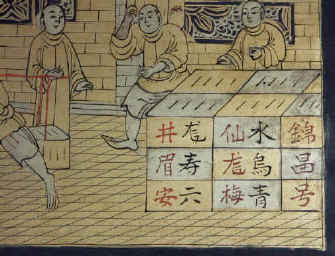 錦昌号
水仙
烏尨
青梅
尨井
寿眉
六安